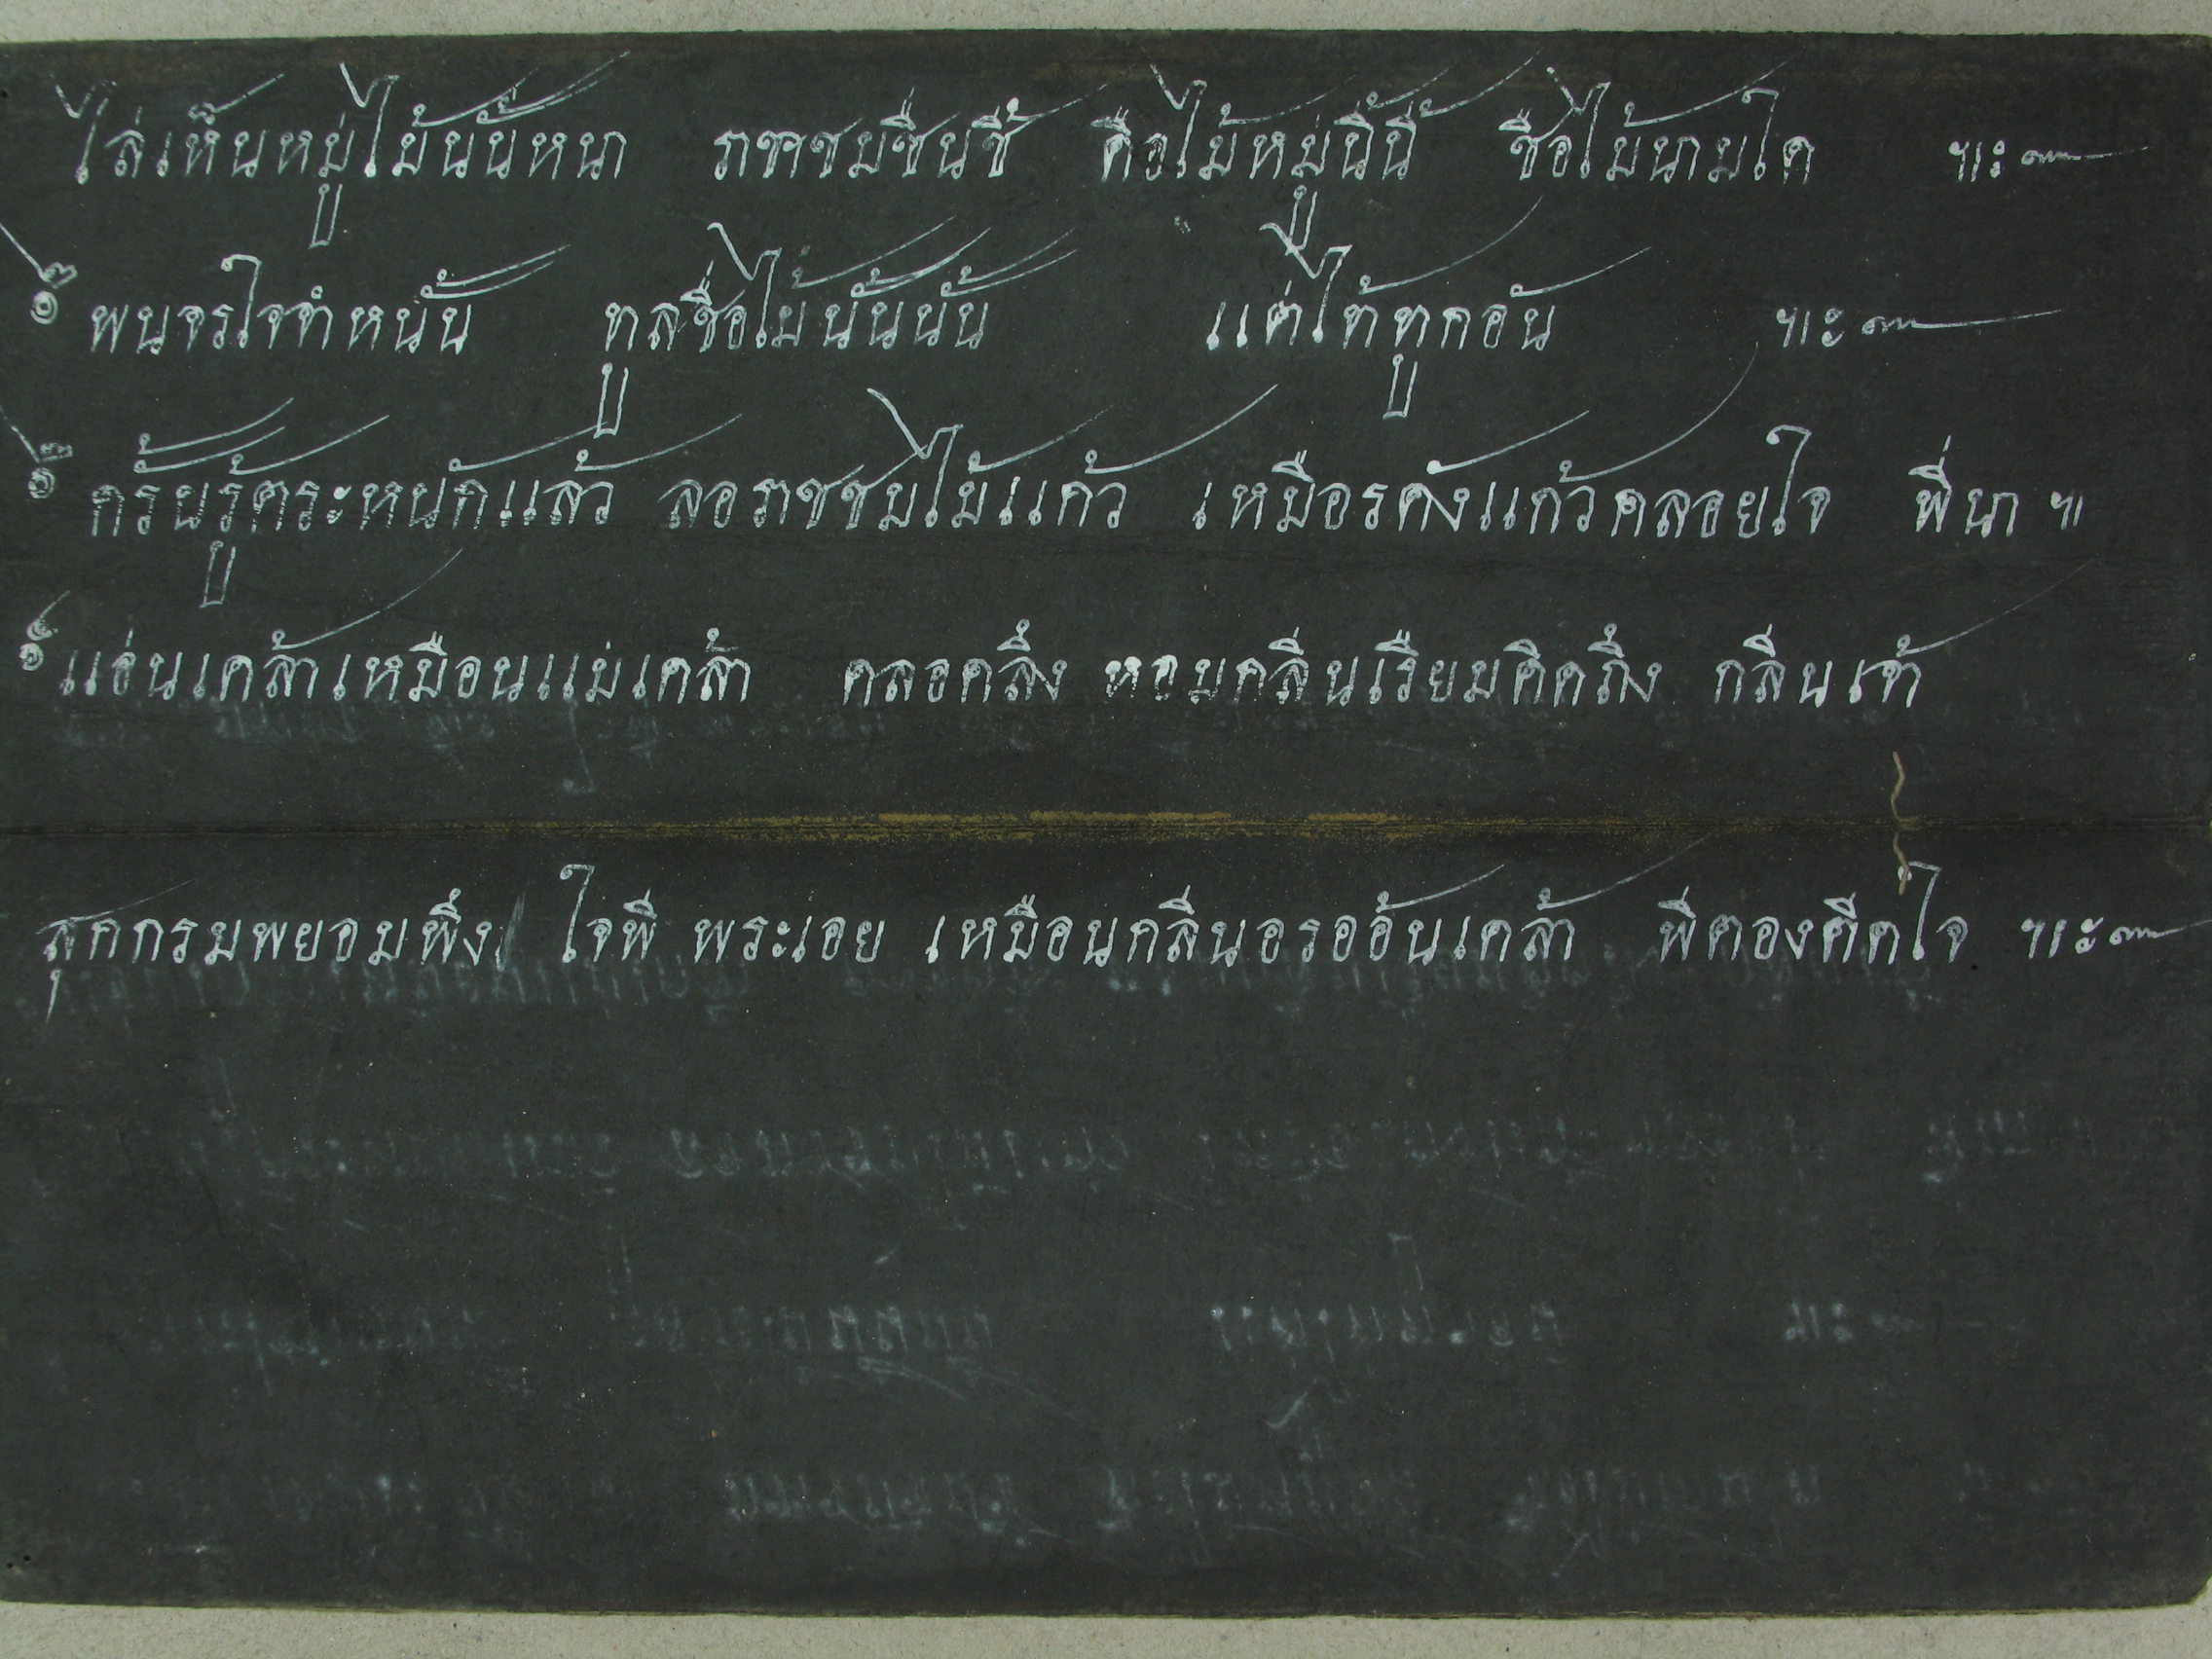 ไส่เห็นหมู่ไม้นั้นหนา ราชชมชื่นชี้ คือไม้หมู่นี้นี้ ชื่อไม้นามใด ฯะ๛
๏ พนจรใจจำหนั้น ทูลชื่อไม้นั้นนั้น แต่ไท้ทูกอัน ฯะ๛
๏ ครั้นรู้ตระหนักแล้ว ลอราชชมไม้แก้ว เหมือรดังแก้วกลอยใจ พี่นา ฯ
๏ แอ่นเคล้าเหมือนแม่เคล้า คลอคลึง หอมกลิ่นเรียมคิดถึง กลิ่นเจ้า
สุกกรมพยอมพึง ใจพี่ พระเอย เหมือนกลิ่นอรอ้อนเคล้า พี่ต้องติดใจ ฯะ๛